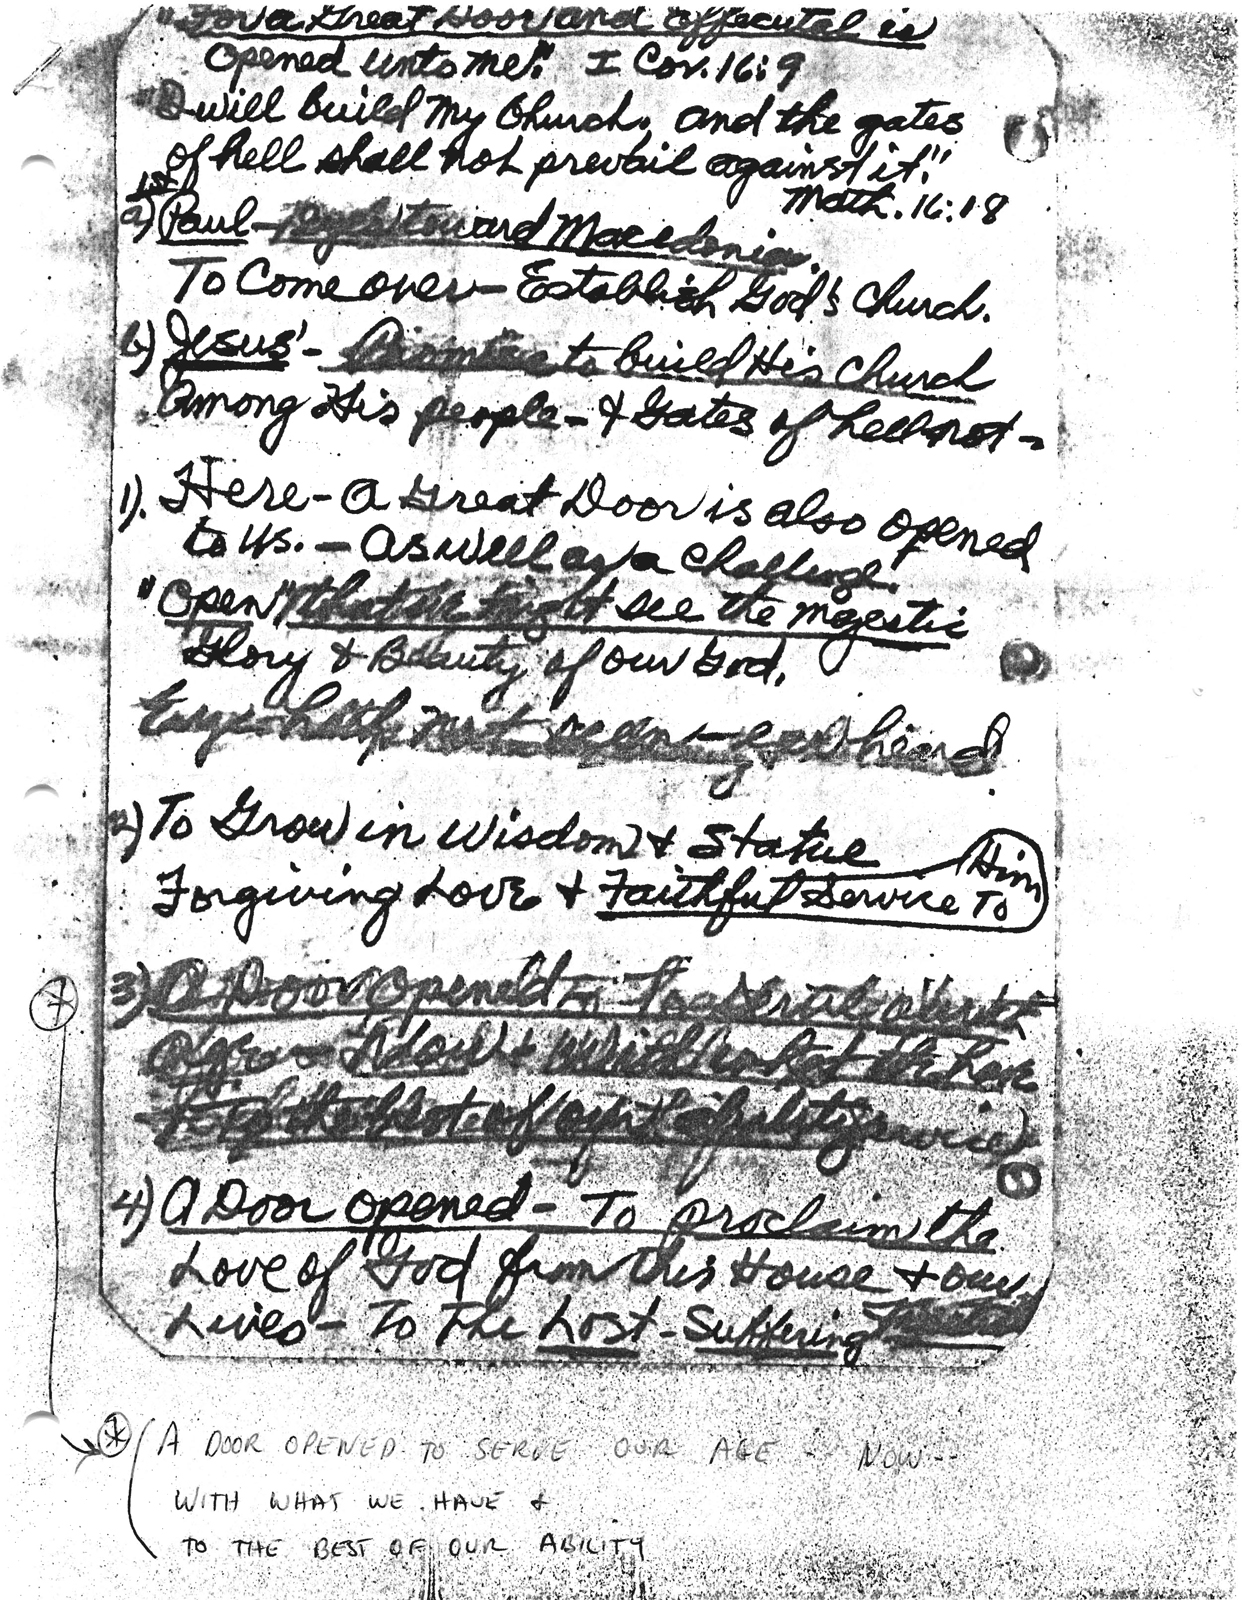 "For a Great Door and effecutal is
opened unto me". I Cor. 16:9
"I will build My Church, and the gates
of hell shall not prevail against it!"
Math. 16:18
1st
a) Paul - eyes toward Macedonia.
To Come over - Establish God's Church.
b) Jesus' - Promise to build His Church
Among His people - & Gates of hell not -
1). Here - A Great Door is also opened
to us. - As well as a challenge.
"Open" that we might see the majestic
Glory & Beauty of our God.
Eye hath not seen - ear heard
2) To Grow in Wisdom & Statue
Forgiving Love & Faithful Service To
Him
3) A Door Opened - To serve
our age - Now & with what we have
& to the best of our ability service)
4) A Door opened - To proclaim the
Love of God from this House & our
Lives - To The Lost - Suffering
* (A DOOR OPENED TO SERVE OUR AGE - NOW --
WITH WHAT WE HAVE &
TO THE BEST OF OUR ABILITY